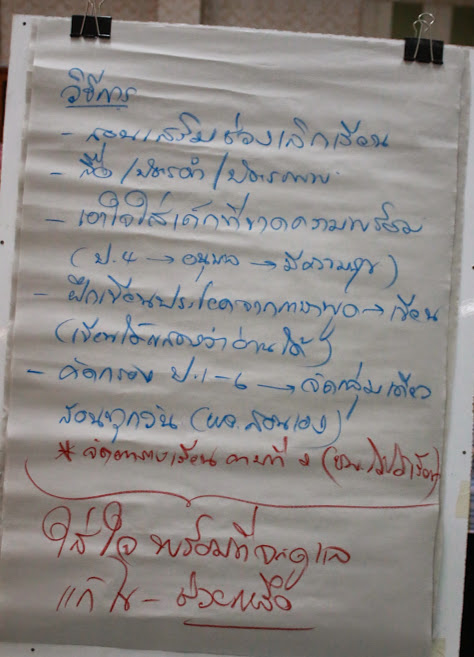 วิธีการ
- สอนเสริมช่วงเลิกเรียน
- สื่อ / บัตรคำ / บัตรภาพ
- เอาใจใส่เด็กที่ขาดความพร้อม
(ป.4 → อนุบาล → มีความสุข)
- ฝึกเขียนประโยคจากภาษาพูด → เขียน
(เขียนได้แสดงว่าอ่านได้)
- คัดกรอง ป.1-6 → จัดกลุ่มเดียว
สอนทุกวัน (ผอ.สอนเอง)
* จัดตารางเรียน
ใส่ใจ พร้อมที่จะดูแล
แก้ไข - ช่วยเหลือ